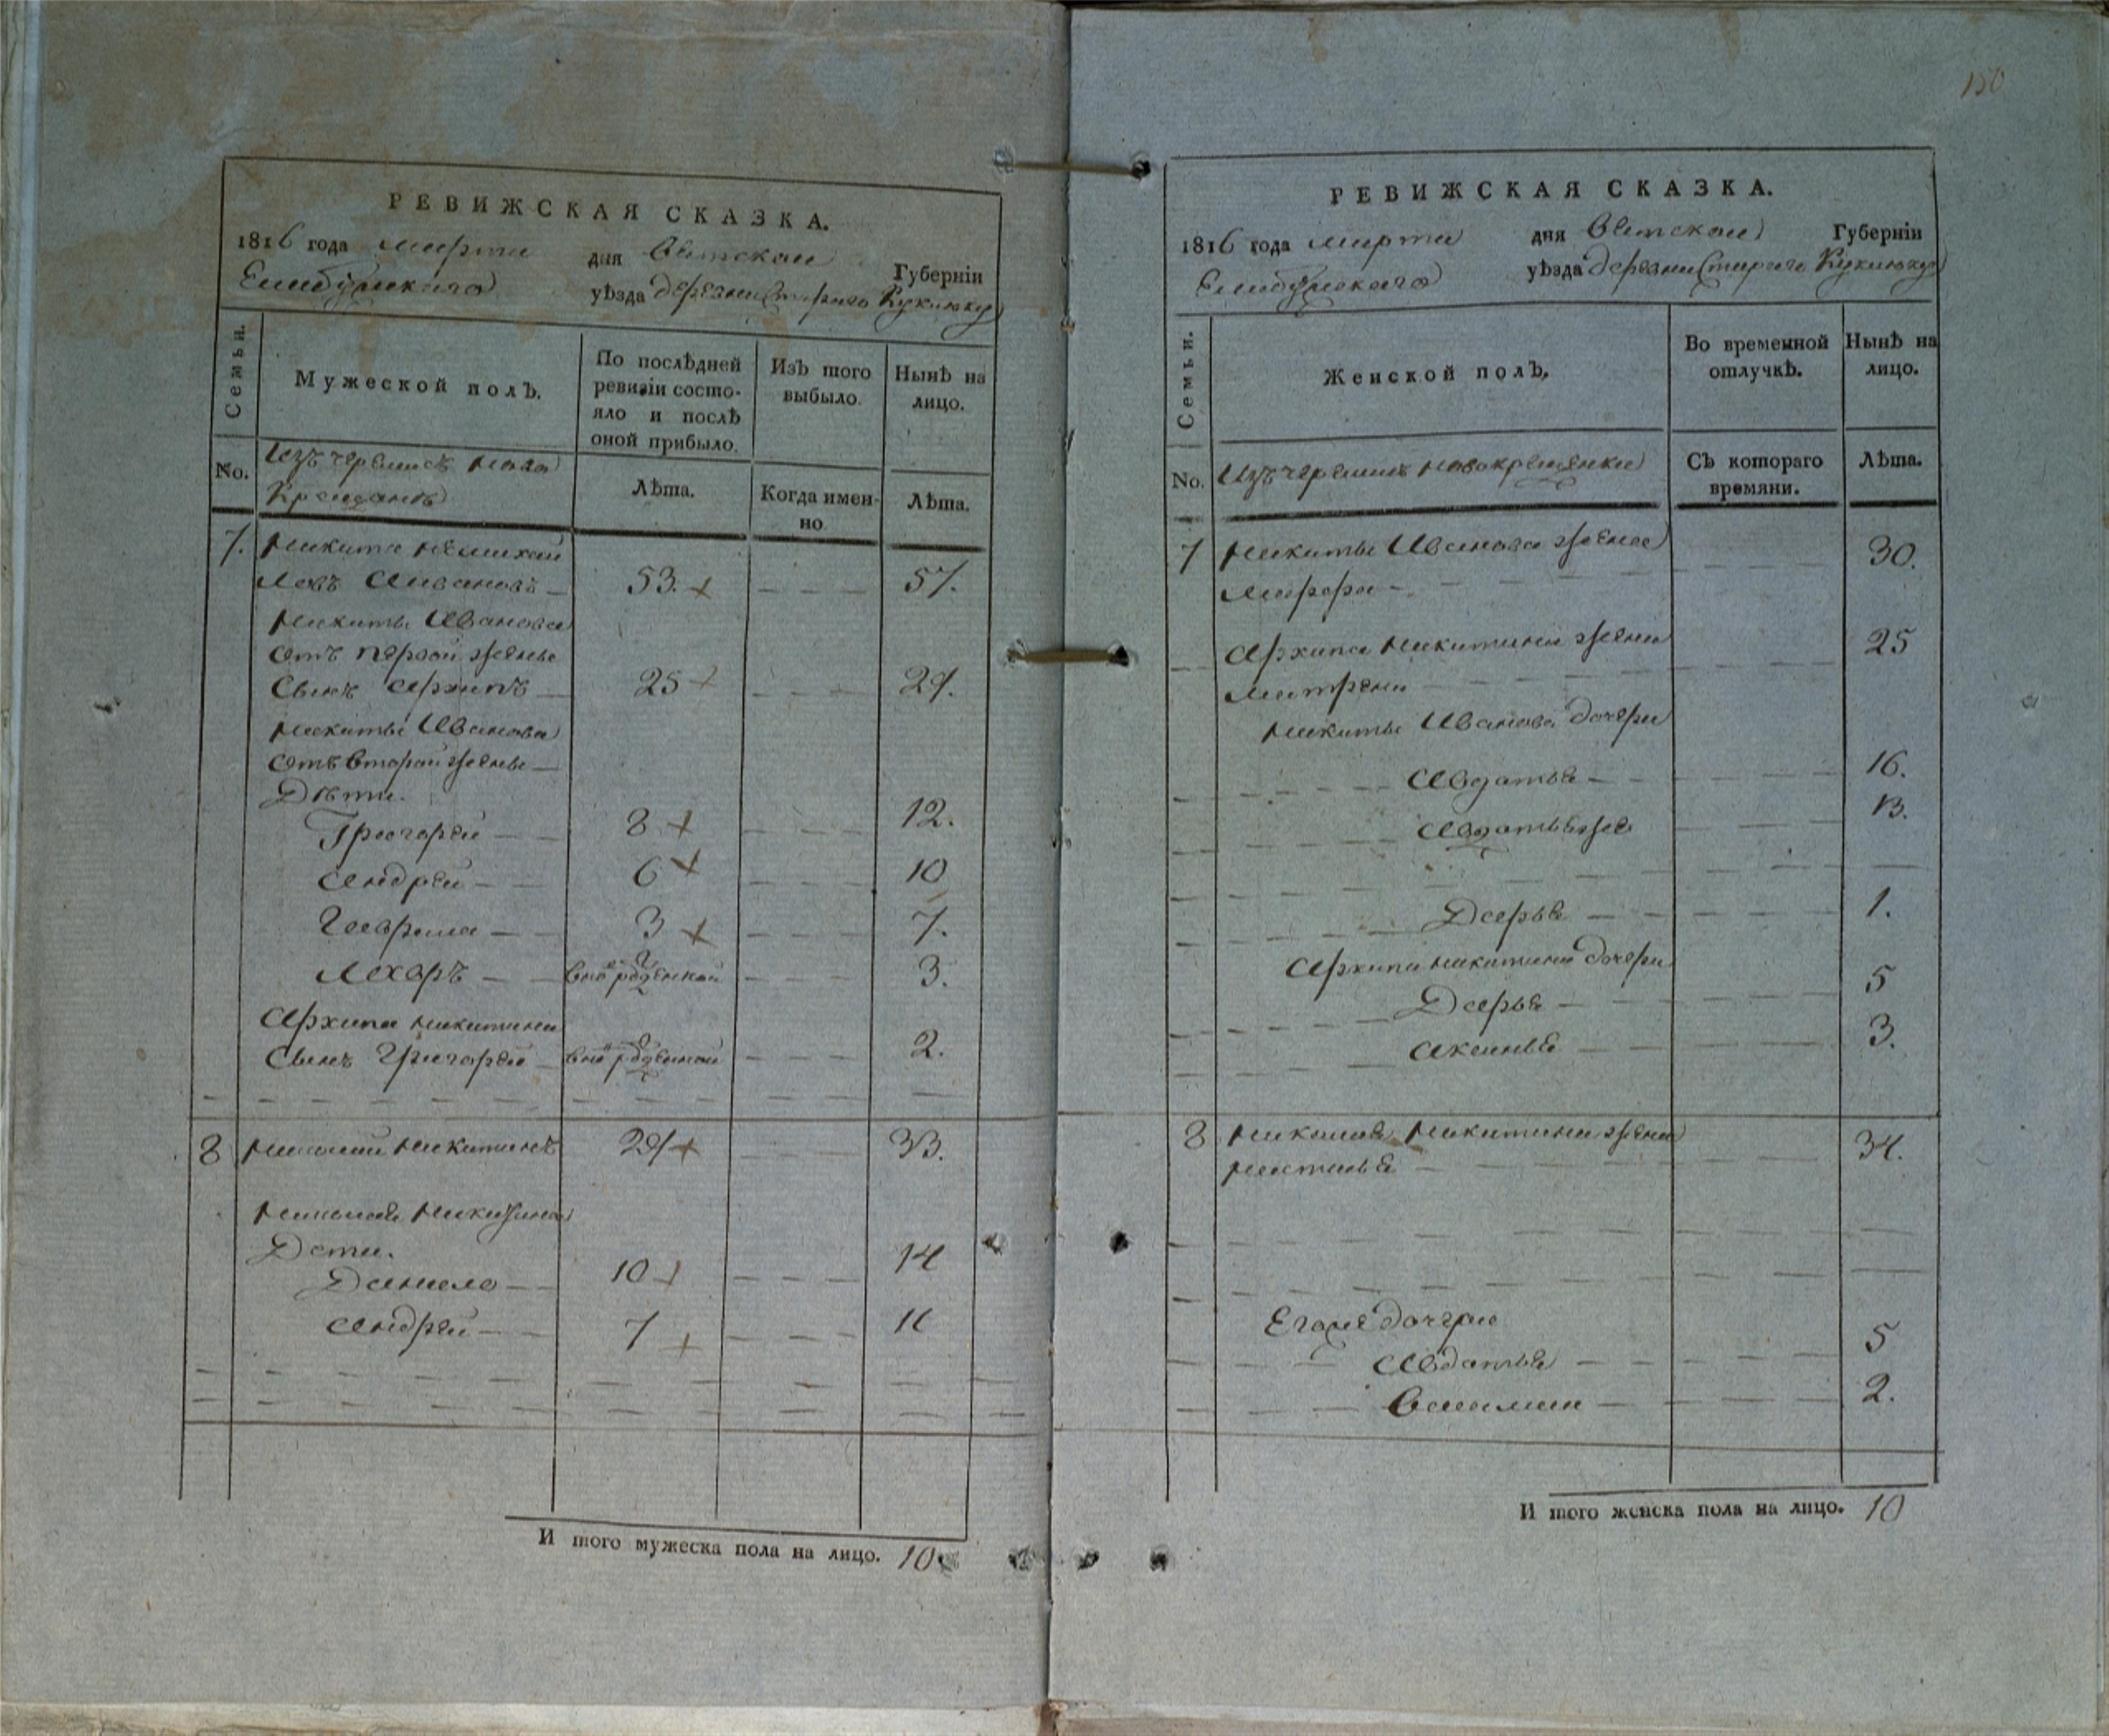 150
РЕВИЖСКАЯ СКАЗКА.
1816 года марта дня Вятской Губерніи
Елабужского уѣзда деревни Старого Кукшоку
Семьи.
Мужеской полъ.
По послѣдней ревизіи состояло и послѣ оной прибыло.
Изъ того выбыло.
Нынѣ на лицо.
No.
Изъ черемисъ ново
Крещанъ
Лѣта.
Когда именно
Лѣта.
7. Никита
Ивановъ 53. 57.
Никиты Иванова
отъ первой жены
Сынъ Архипъ 25 29.
Никиты Иванова
отъ второй жены
Дѣти.
Григорей 8 12.
Андрей 6 10
Гаврила 3 7.
Захаръ 3.
Архипа Никитина
Сынъ Григорей 2.
8 Николай Никитинъ 29 33.
Николая Никитина
Дети.
Данило 10 14
Андрей 7 11
И того мужеска пола на лицо. 10
РЕВИЖСКАЯ СКАЗКА.
1816 года марта дня Вятской Губерніи
Елабужского уѣзда деревни Старого Кукшоку
Семьи.
Женской полъ.
Во временной отлучкѣ.
Нынѣ на лицо.
No.
Изъ черемисъ новокрещенки
Съ котораго времяни.
Лѣта.
7 Никиты Иванова жена 30.
Марфа
Архипа Никитина жена 25
Матрена
Никиты Иванова дочери
Авдотья 16.
Авдотья же 13.
Дарья 1.
Архипа Никитина дочери
Дарья 5
Аксинья 3.
8 Николая Никитина жена 34.
Настасья
Его же дочери
Авдотья 5
2.
И того женска пола на лицо. 10